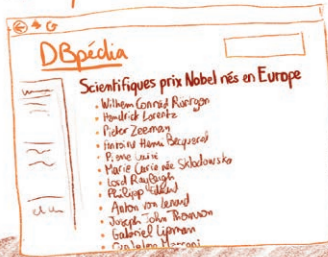 DBpédia
Scientifiques prix Nobel nés en Europe
Wilhem Conrad
Hendrick Lorentz
Pieter Zeeman
Antoine Henri Becquerel
Pierre Curie
Marie Curie née Skłodowska
Lord Rayleigh
Philipp
Anton von Lenard
Joseph John Thomson
Gabriel Lipman
Guglielmo Marconi